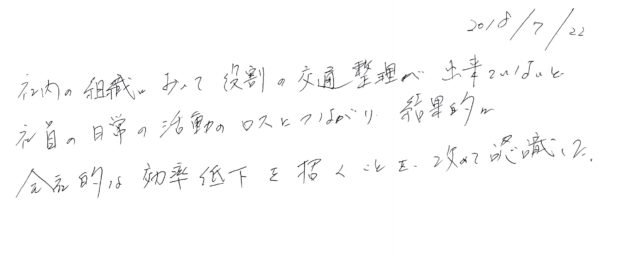 2018/7/22
社内の組織において役割の交通整理が出来ていないと
社員の日常の活動のロスにつながり、結果的に
全社的な効率低下を招くことを、改めて認識した。